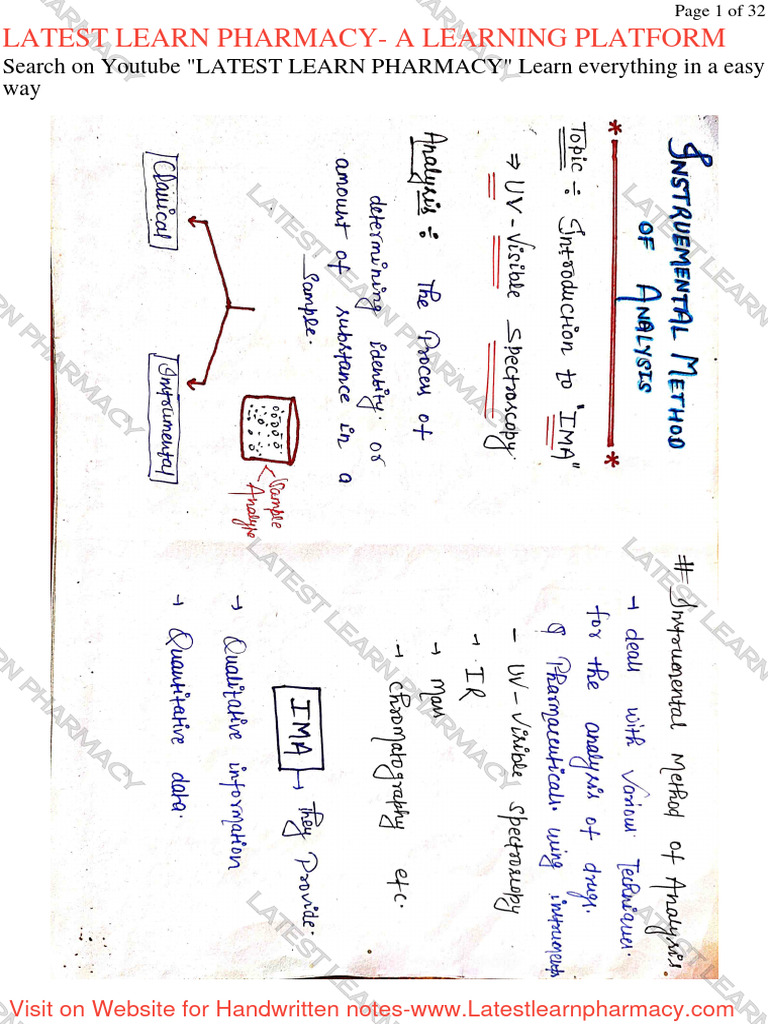 Page 1 of 32
LATEST LEARN PHARMACY- A LEARNING PLATFORM
Search on Youtube "LATEST LEARN PHARMACY" Learn everything in a easy
way
INSTRUEMENTAL METHOD
OF ANALYSIS
Topic :- Introduction to "IMA"
⇒ UV-Visible Spectroscopy.
Analysis :- The Process of
determining identity or
amount of substance in a
Sample.
Sample
Analyte
Classical
Instrumental
# Instrumental Method of Analysis.
→ deals with various Techniques.
for the analysis of drugs.
& Pharmaceuticals. using instruments
- UV-Visible spectroscopy
→ IR
→ Mass
→ Chromatography etc.
IMA → They Provide.
→ Qualitative information
→ Quantitative data.
Visit on Website for Handwritten notes-www.Latestlearnpharmacy.com
LATEST LEARN PHARMACY